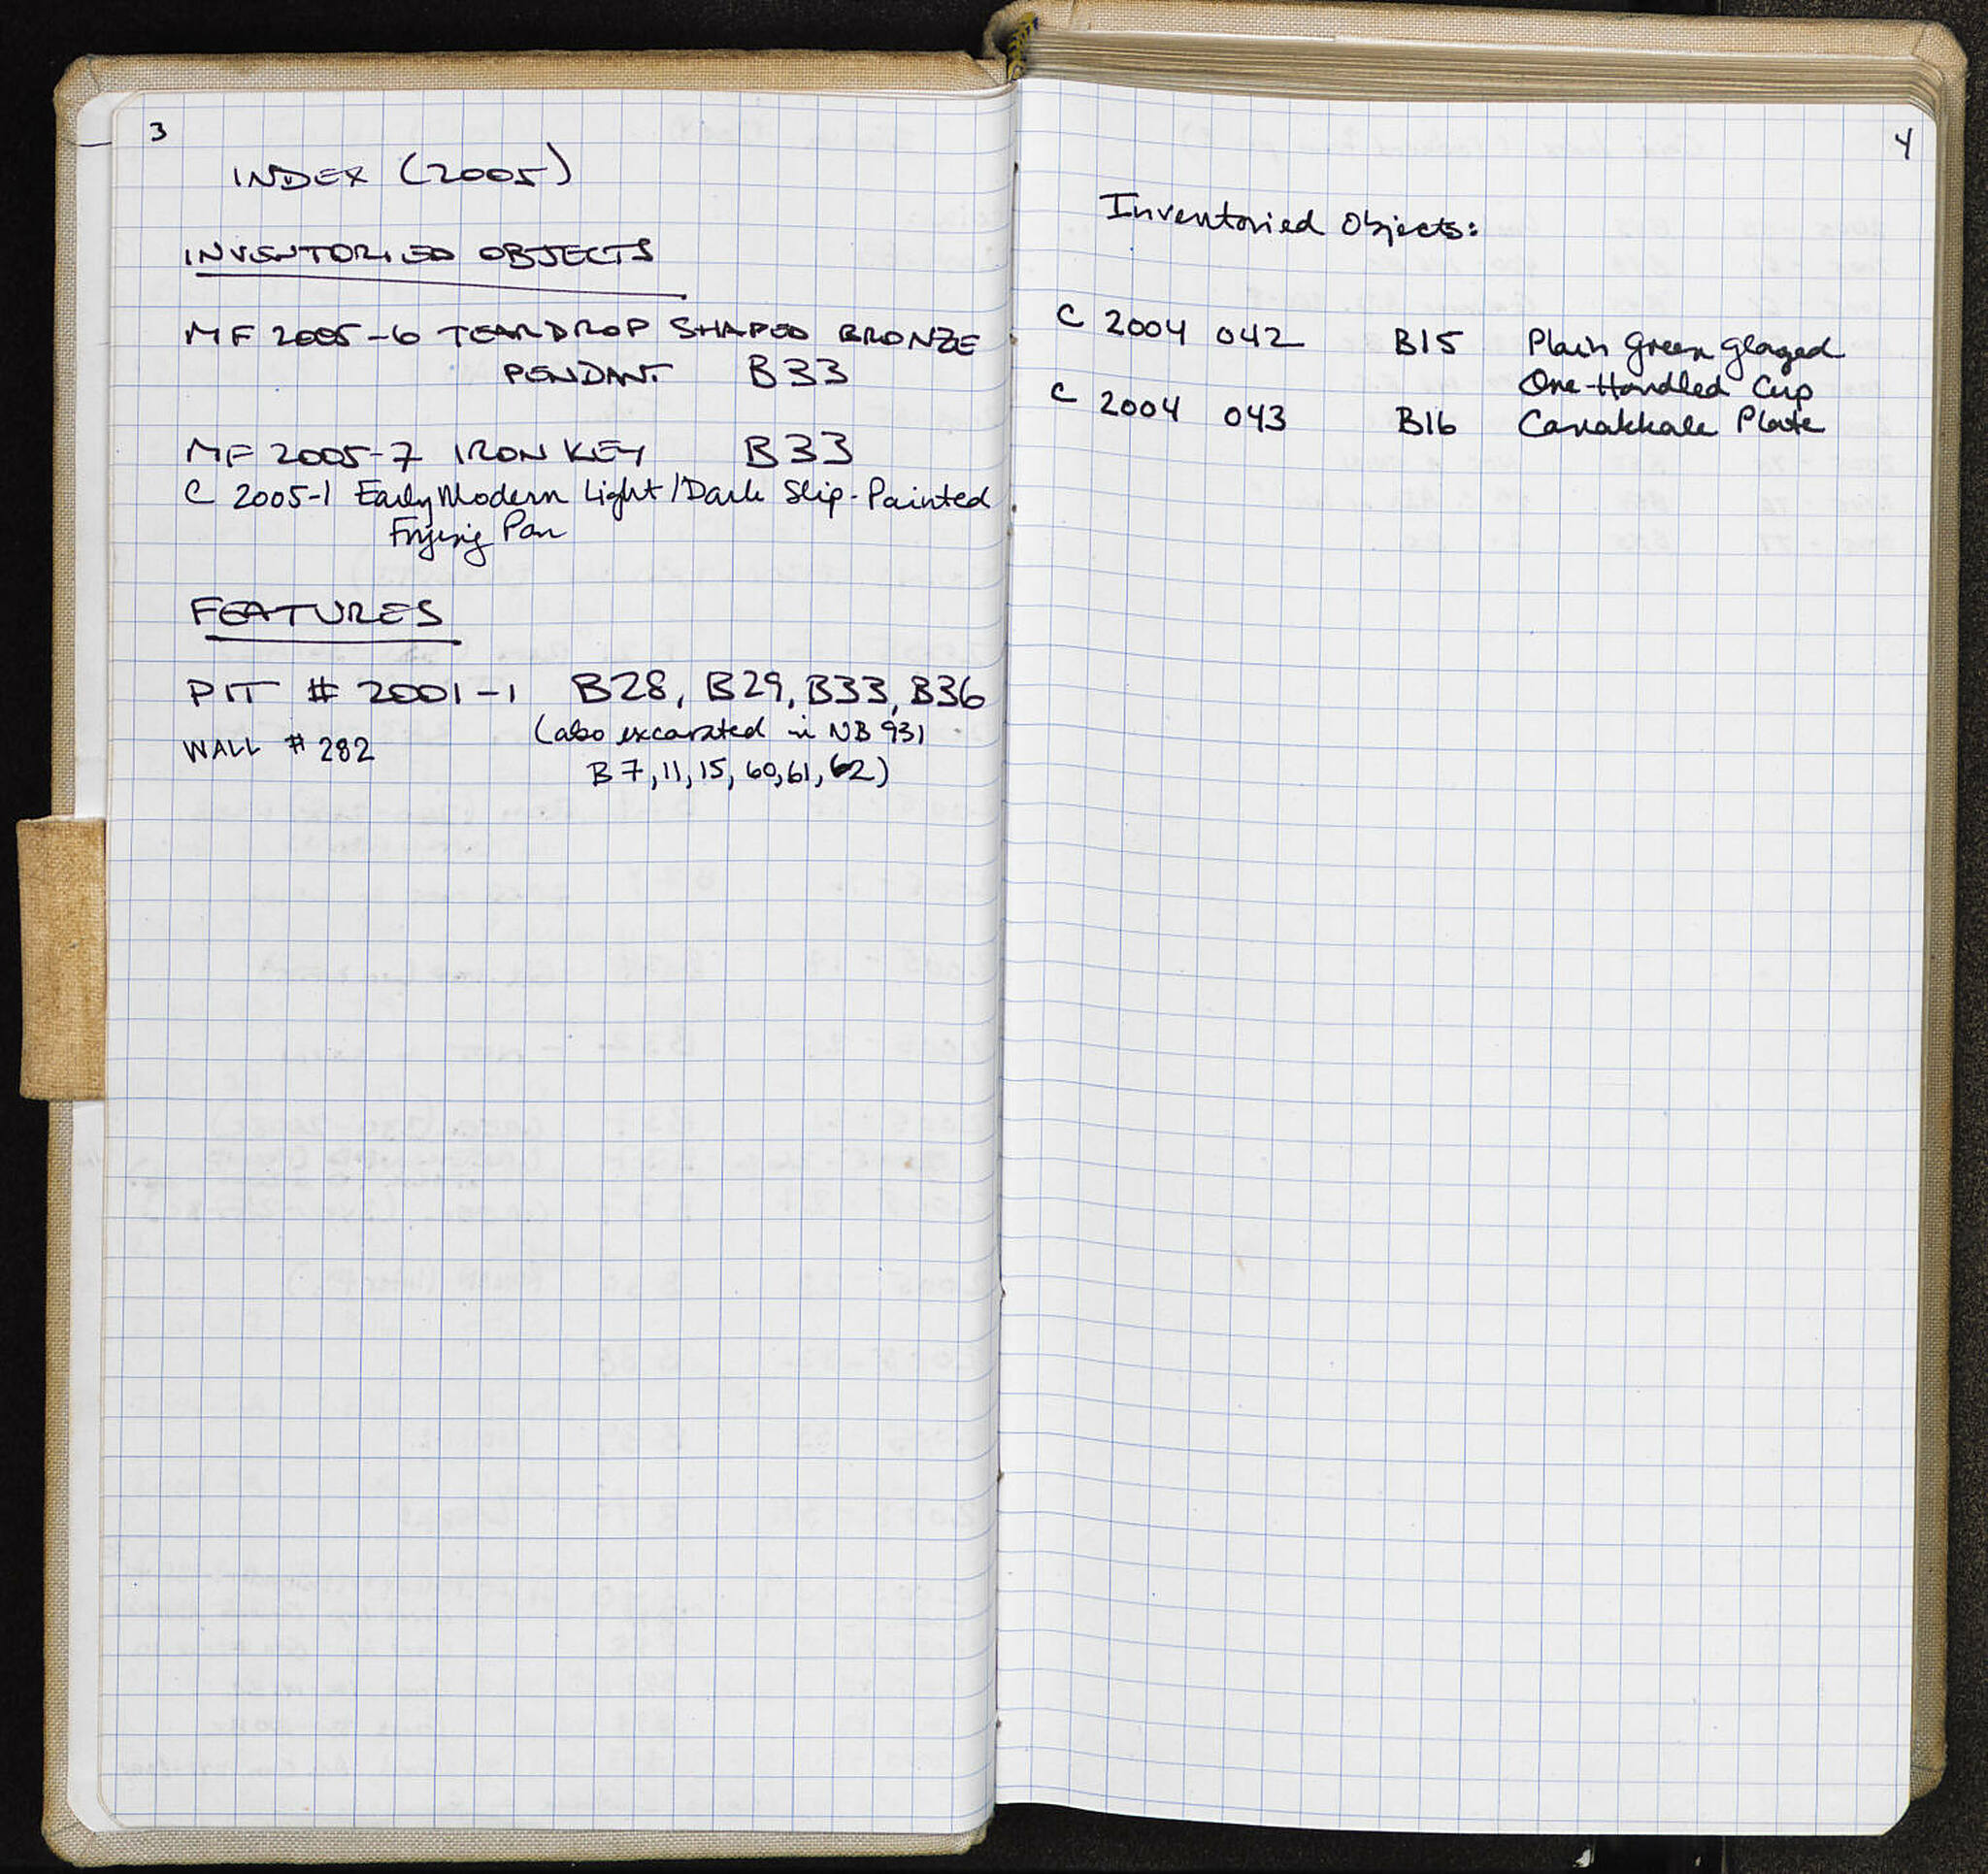 3
INDEX (2005)
INVENTORIED OBJECTS
MF 2005-6 TEARDROP SHAPED BRONZE
PENDANT B33
MF 2005-7 IRON KEY B33
C 2005-1 Early Modern Light/Dark Slip-Painted
Frying Pan
FEATURES
PIT # 2001-1 B28, B29, B33, B36
(also excavated in NB 931
B7, 11, 15, 60, 61, 62)
WALL # 282
4
Inventoried Objects:
C 2004 042 B15 Plain Green Glazed
One-Handled Cup
C 2004 043 B16 Canakkale Plate